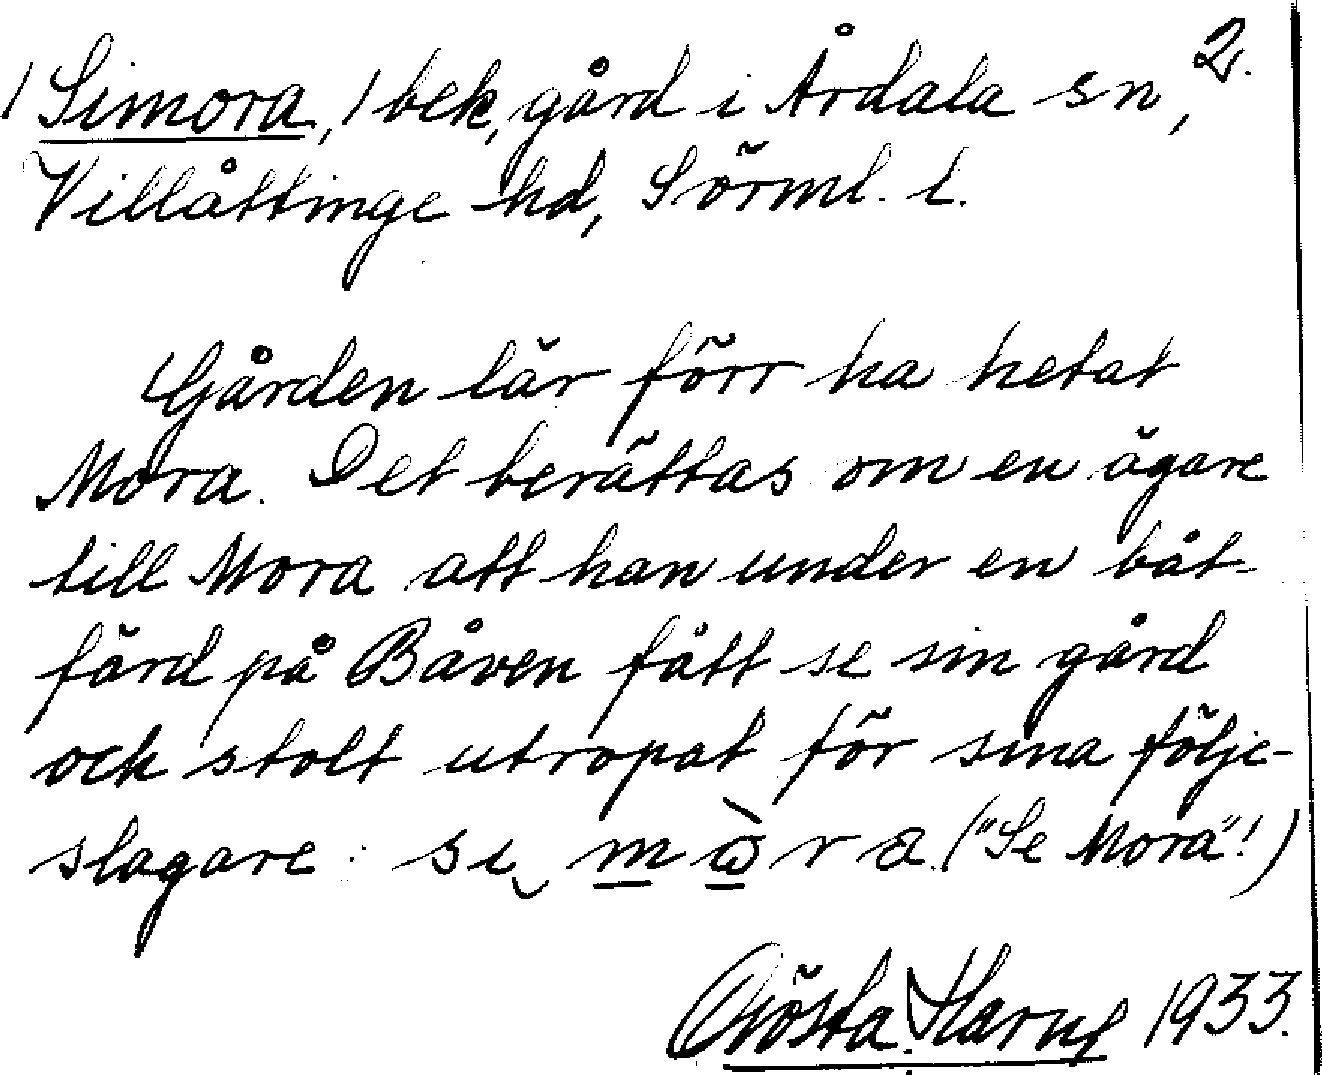 /Simora,/ bek, gård i Årdala sn, 2.
Villåttinge hd, Sörml. l.
Gården lär förr ha hetat
Mora. Det berättas om en ägare
till Mora att han under en båt-
färd på Båven fått se sin gård
och stolt utropat för sina följe-
slagare: si mòra ("Se Mora"!)
Gösta 1933.